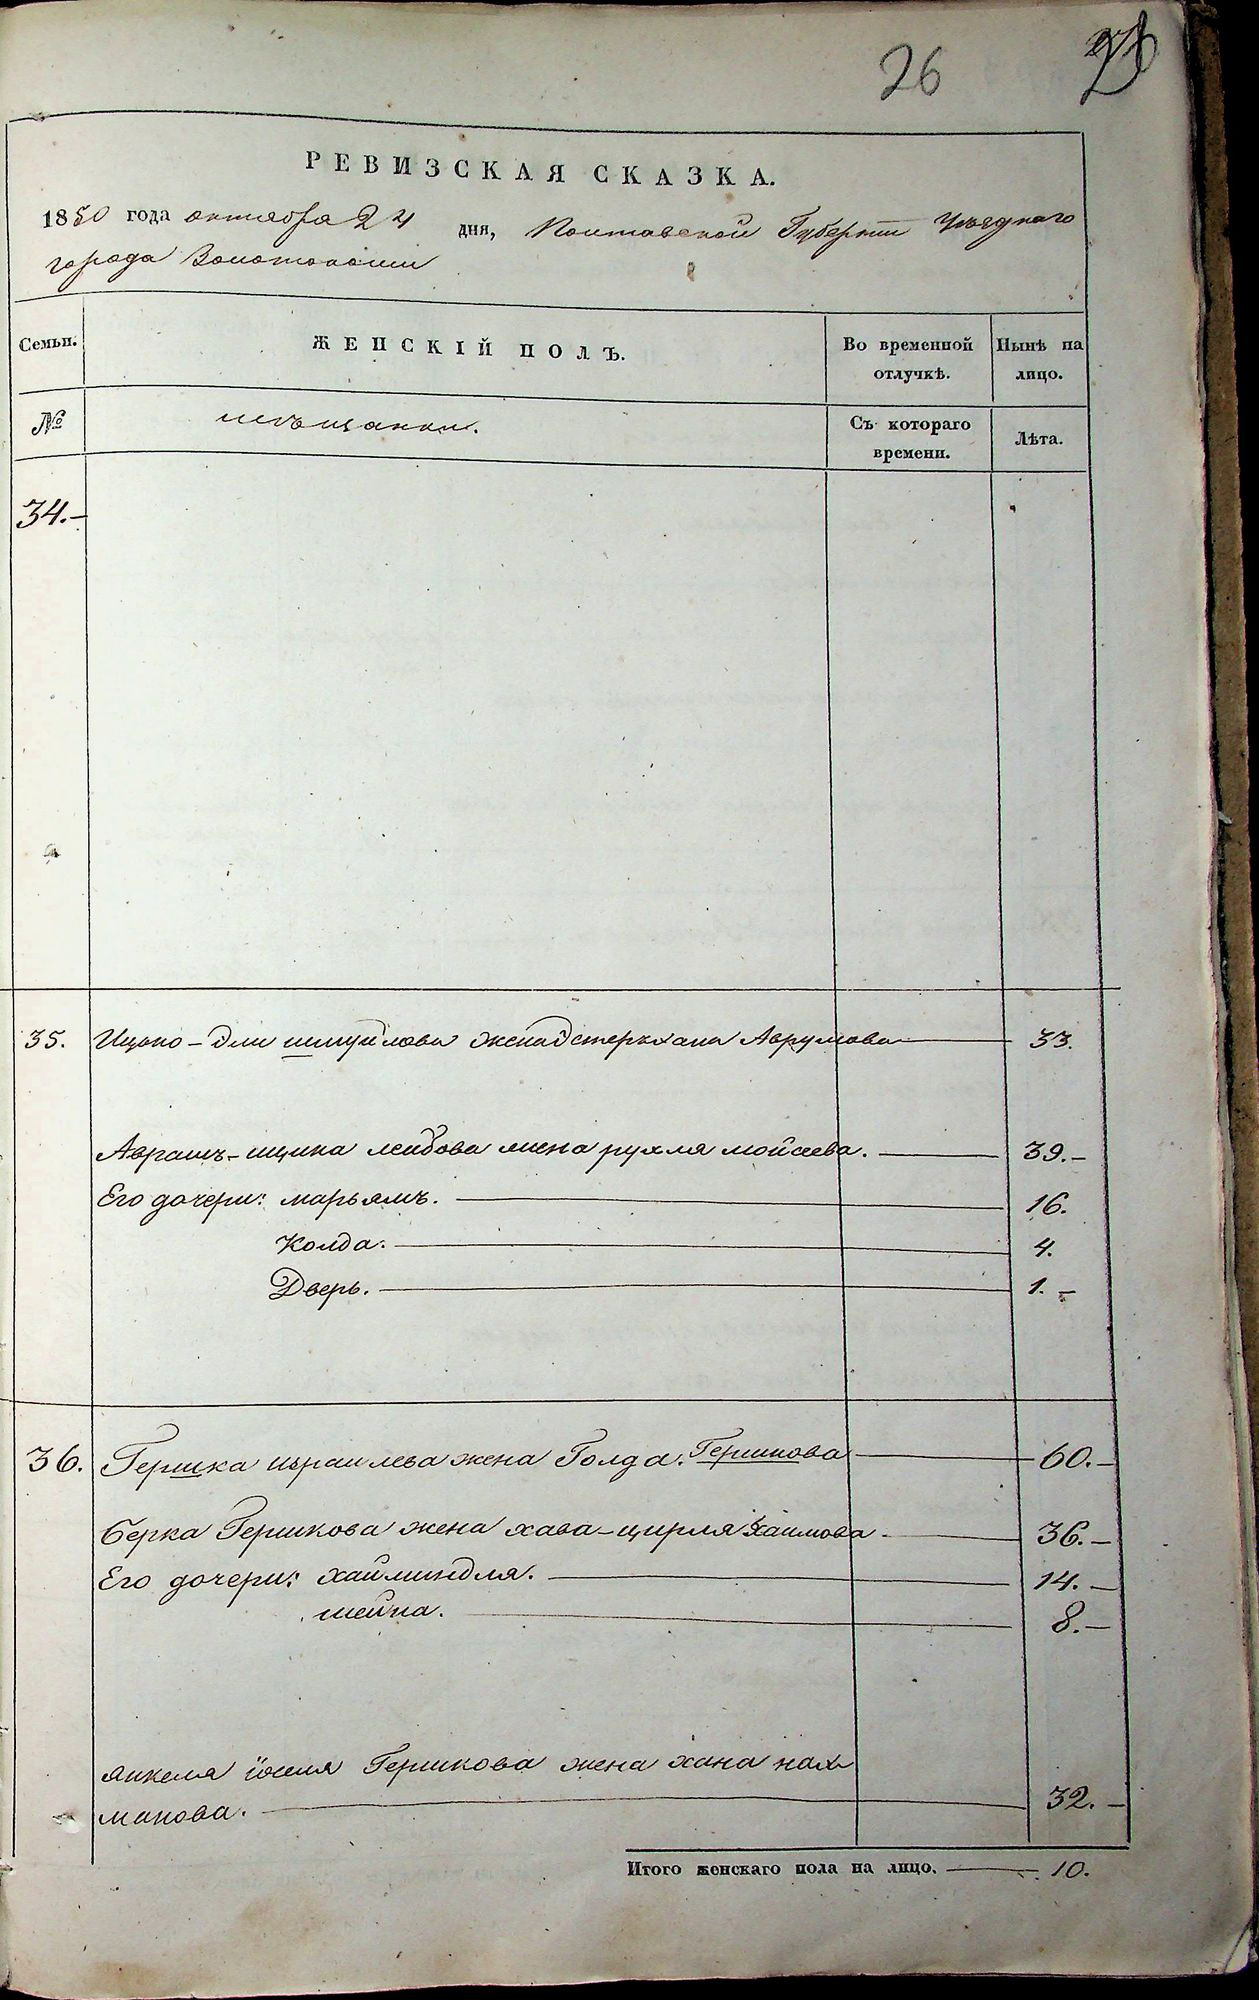 26
РЕВИЗСКАЯ СКАЗКА.
1850 года октября 24 дня, Полтавской Губернии Уъзднаго
города Золотоноши
Семьи. ЖЕНСКІЙ ПОЛЪ. Во временной отлучкѣ. Нынѣ на лицо.
№ мъщанки. Съ котораго времени. Лѣта.
34.-
35. Ицко-Эли шмуйлова жена Эстеръхана Аврумова 33.
Аврамъ-ицика лейбова жена рухля мойсеева. 39.-
Его дочери: марьямъ. 16.
Колда. 4.
Дверь. 1.-
36. Гершка израилева жена Голда Гершкова 60.-
берка Гершкова жена хава-цирля хаимова 36.-
Его дочери: хайминдля. 14.-
шейна. 8.-
янкеля іоселя Гершкова жена хана нах
манова. 32.-
Итого женскаго пола на лицо. 10.